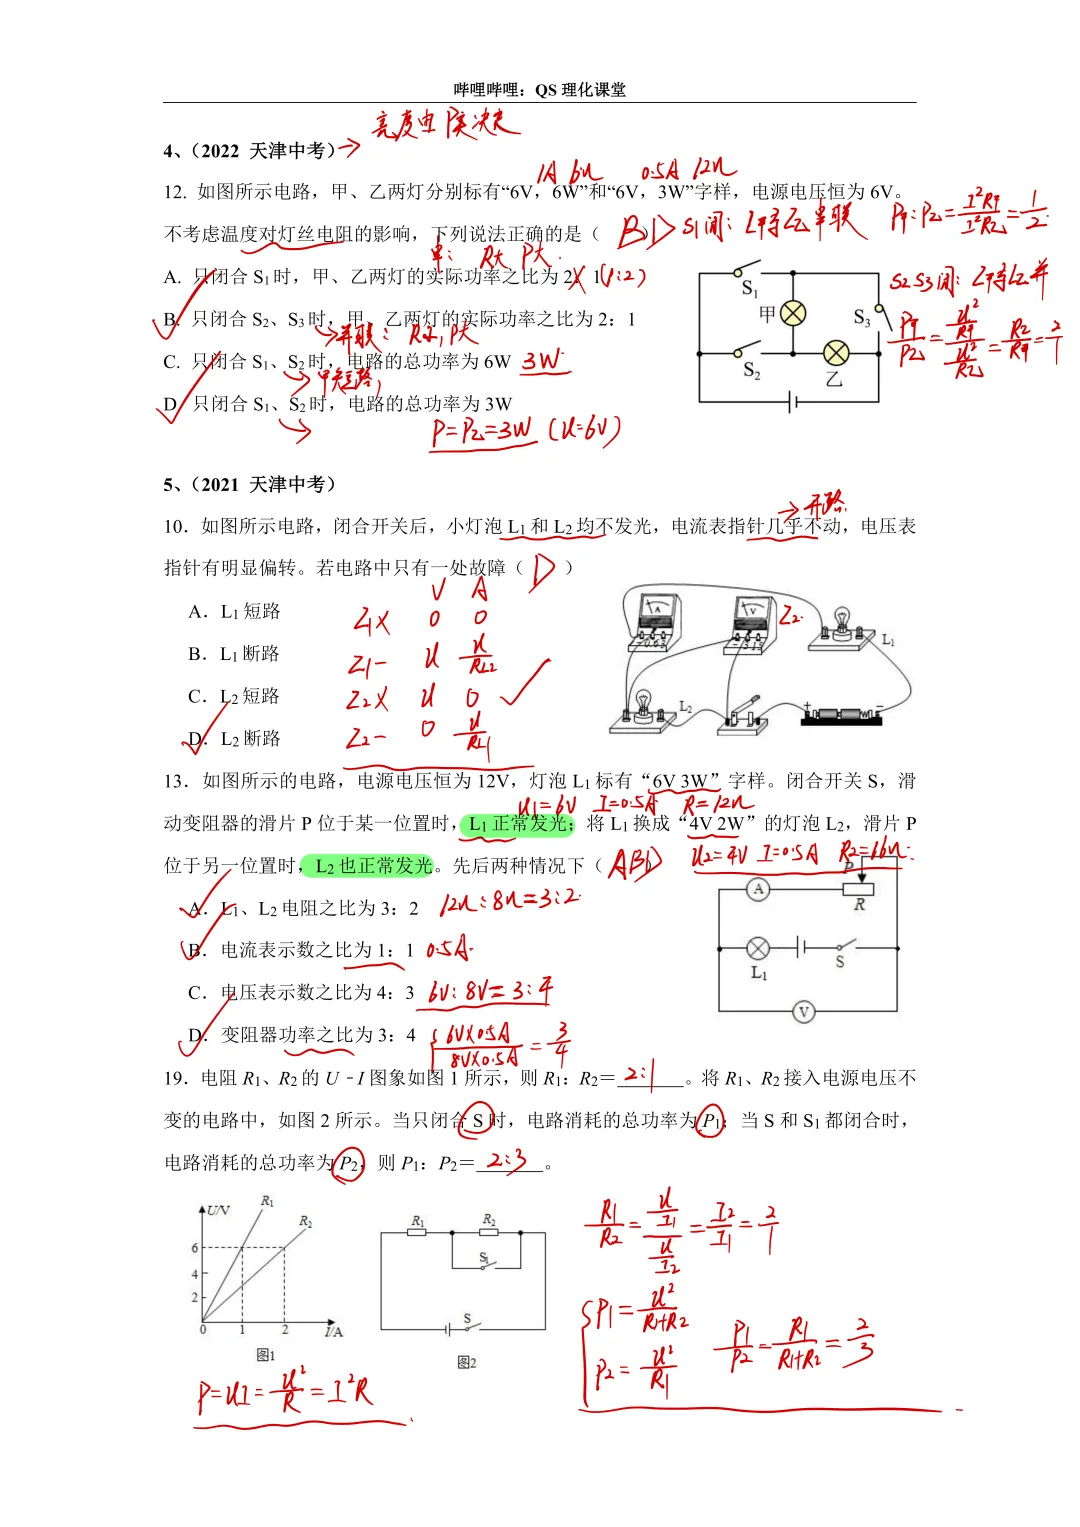 哔哩哔哩：QS 理化课堂
亮度由 P实决定
4、（2022 天津中考）
1A 6Ω 0.5A 12Ω
12. 如图所示电路，甲、乙两灯分别标有“6V，6W”和“6V，3W”字样，电源电压恒为 6V。
不考虑温度对灯丝电阻的影响，下列说法正确的是（ BD ）
S1闭：L甲与L乙串联 P甲:P乙=I²R甲/I²R乙=1/2
串：R大 P大.
A. 只闭合 S1 时，甲、乙两灯的实际功率之比为 2：1 (1:2)
B. 只闭合 S2、S3 时，甲、乙两灯的实际功率之比为 2：1
并联：R小,P大
C. 只闭合 S1、S2 时，电路的总功率为 6W 3W.
甲短路,
D. 只闭合 S1、S2 时，电路的总功率为 3W
P=P乙=3W (U=6V)
S1
甲
S3
S2
乙
S2 S3闭：L甲与L乙并
P甲/P乙=(U²/R甲)/(U²/R乙)=R乙/R甲=2/1
5、（2021 天津中考）
→开路
10．如图所示电路，闭合开关后，小灯泡 L1 和 L2 均不发光，电流表指针几乎不动，电压表
指针有明显偏转。若电路中只有一处故障（ D ）
V A
A．L1 短路
0 0
B．L1 断路
U U/RL2
C．L2 短路
U 0
D．L2 断路
0 U/RL1
A
V
L1
L2
+ −
13．如图所示的电路，电源电压恒为 12V，灯泡 L1 标有“6V 3W”字样。闭合开关 S，滑
U1=6V I=0.5A R=12Ω
动变阻器的滑片 P 位于某一位置时，L1 正常发光；将 L1 换成“4V 2W”的灯泡 L2，滑片 P
位于另一位置时，L2 也正常发光。先后两种情况下（ ABD
U2=4V I=0.5A R2=16Ω.
A．L1、L2 电阻之比为 3：2 12Ω:8Ω=3:2.
B．电流表示数之比为 1：1 0.5A.
C．电压表示数之比为 4：3 6V:8V=3:4
D．变阻器功率之比为 3：4 6V×0.5A/8V×0.5A=3/4
P
A
R
L1
S
V
19．电阻 R1、R2 的 U﹣I 图象如图 1 所示，则 R1：R2＝ 2:1 。将 R1、R2 接入电源电压不
变的电路中，如图 2 所示。当只闭合 S 时，电路消耗的总功率为 P1；当 S 和 S1 都闭合时，
电路消耗的总功率为 P2，则 P1：P2＝ 2:3 。
U/V
R1
R2
6
4
2
0 1 2 I/A
图1
R1 R2
S1
S
图2
R1/R2=(U/I1)/(U/I2)=I2/I1=2/1
P1=U²/R1+R2
P2=U²/R1
P1/P2=R1/R1+R2=2/3
P=UI=U²/R=I²R